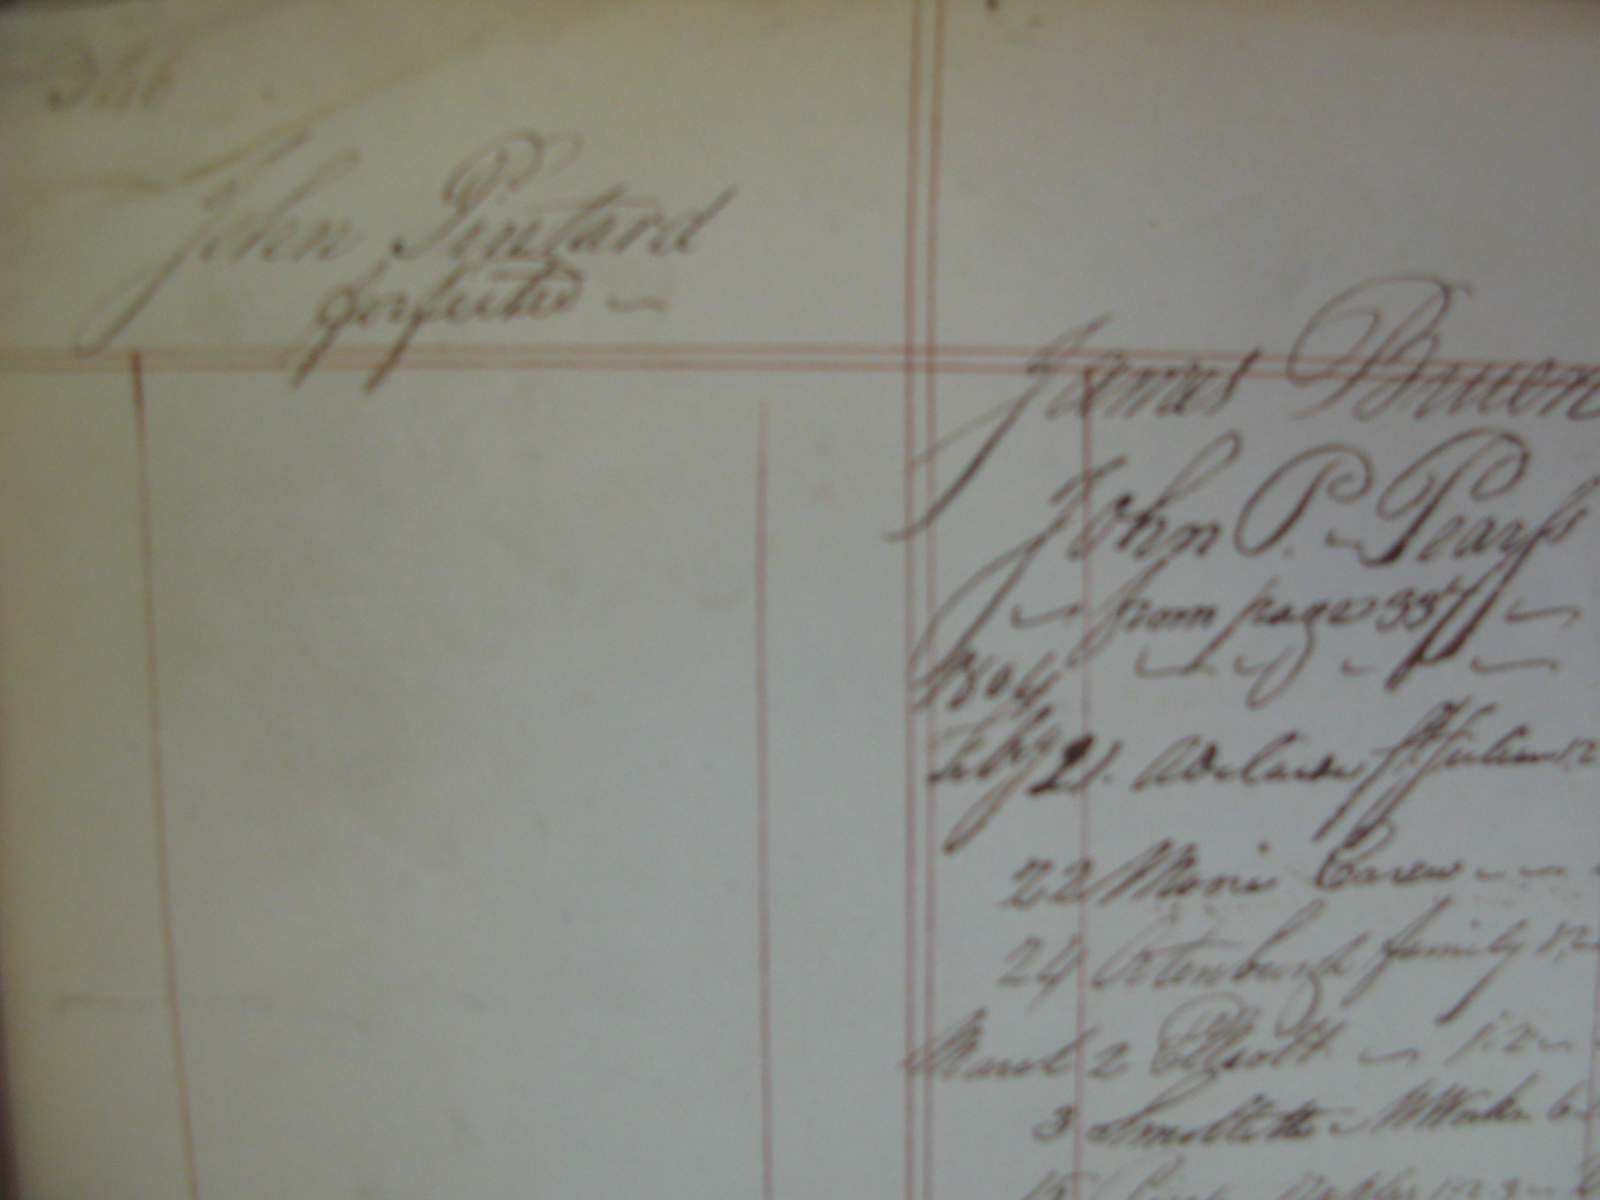 346
John Pintard
forfeited
James Bruen
John P. Pearss
from page 337
1804
Feby 21. Adelaide St Julian 1.2
22 Marie Carew
24 Ostenburgh family 1.2
March 2 Elliott 1.2
3 Smollette
15